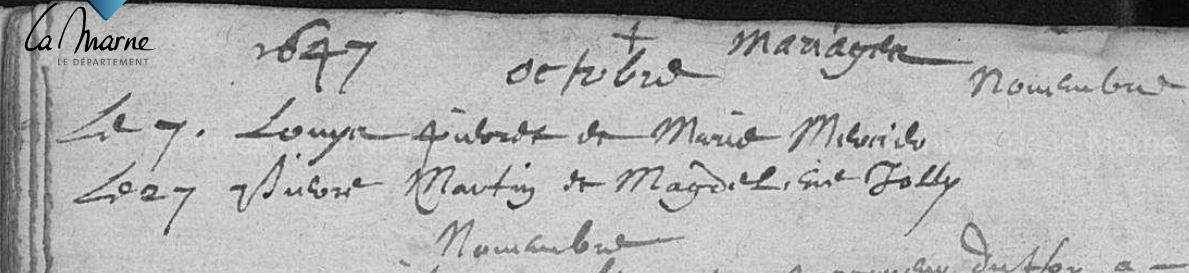 La Marne
LE DÉPARTEMENT
1647
octobre Mariages Nouembre
Le 7. Louys et Marie Mercier
Le 27 Pierre Martin et Magdeleine Jolly
Nouembre